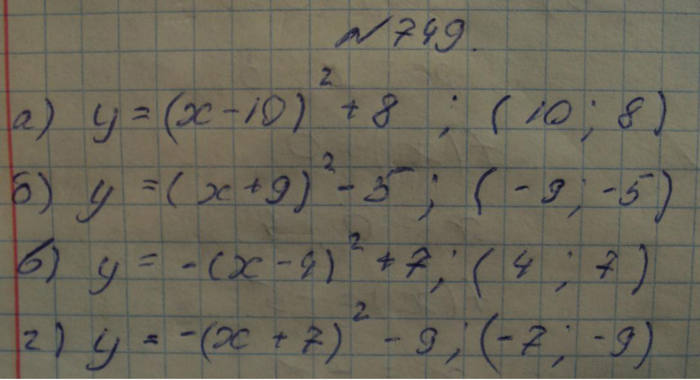 №749.
а) y = (x-10)² + 8 ; (10; 8)
б) y = (x+9)² - 5; (-9; -5)
в) y = -(x-4)² + 7; (4; 7)
г) y = -(x+7)² - 9; (-7; -9)